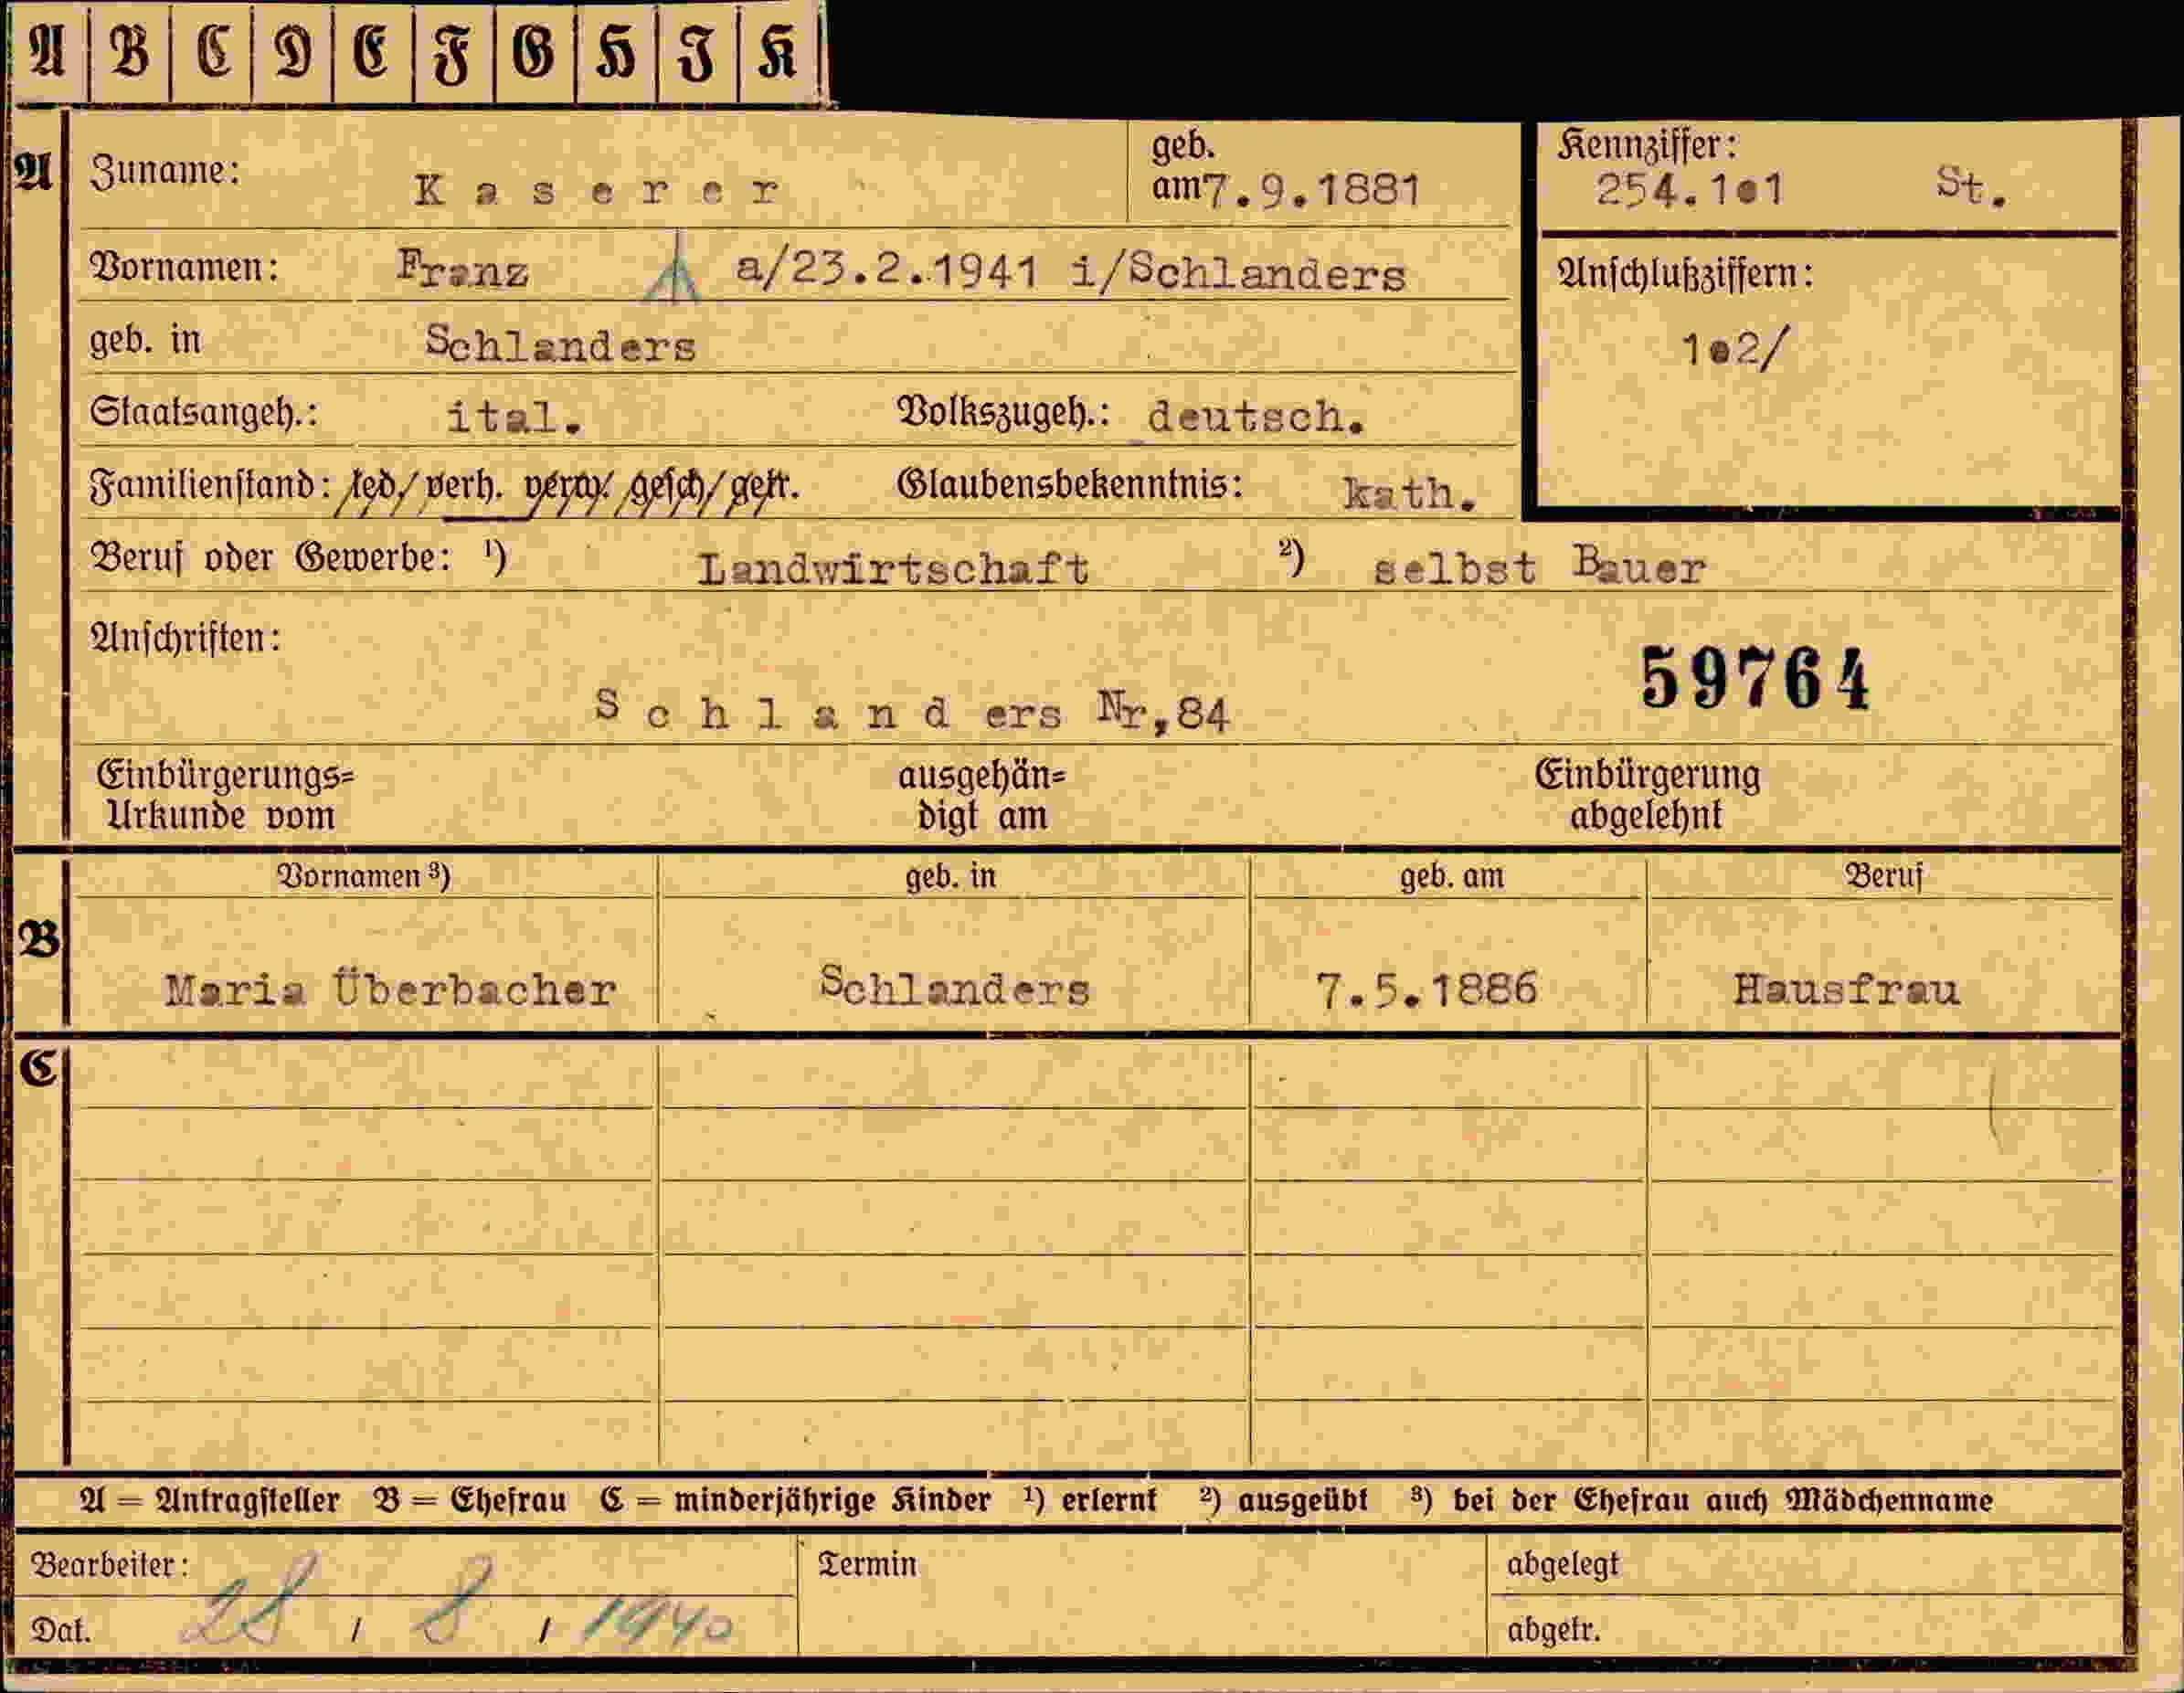 A B C D E F G H I K
A Zuname: Kaserer geb. am 7.9.1881 Kennziffer: 254.101 St.
Vornamen: Franz a/23.2.1941 i/Schlanders Anschlußziffern:
geb. in Schlanders 102/
Staatsangeh.: ital. Volkszugeh.: deutsch.
Familienstand: led/verh. verw/gesch/getr. Glaubensbekenntnis: kath.
Beruf oder Gewerbe: ¹) Landwirtschaft ²) selbst Bauer
Anschriften:
59764
Schlanders Nr,84
Einbürgerungs= ausgehän= Einbürgerung
Urkunde vom digt am abgelehnt
Vornamen ³) geb. in geb. am Beruf
B
Maria Überbacher Schlanders 7.5.1886 Hausfrau
C
A = Antragsteller B = Ehefrau C = minderjährige Kinder ¹) erlernt ²) ausgeübt ³) bei der Ehefrau auch Mädchenname
Bearbeiter: Termin abgelegt
Dat. 28 / 8 / 1940 abgetr.